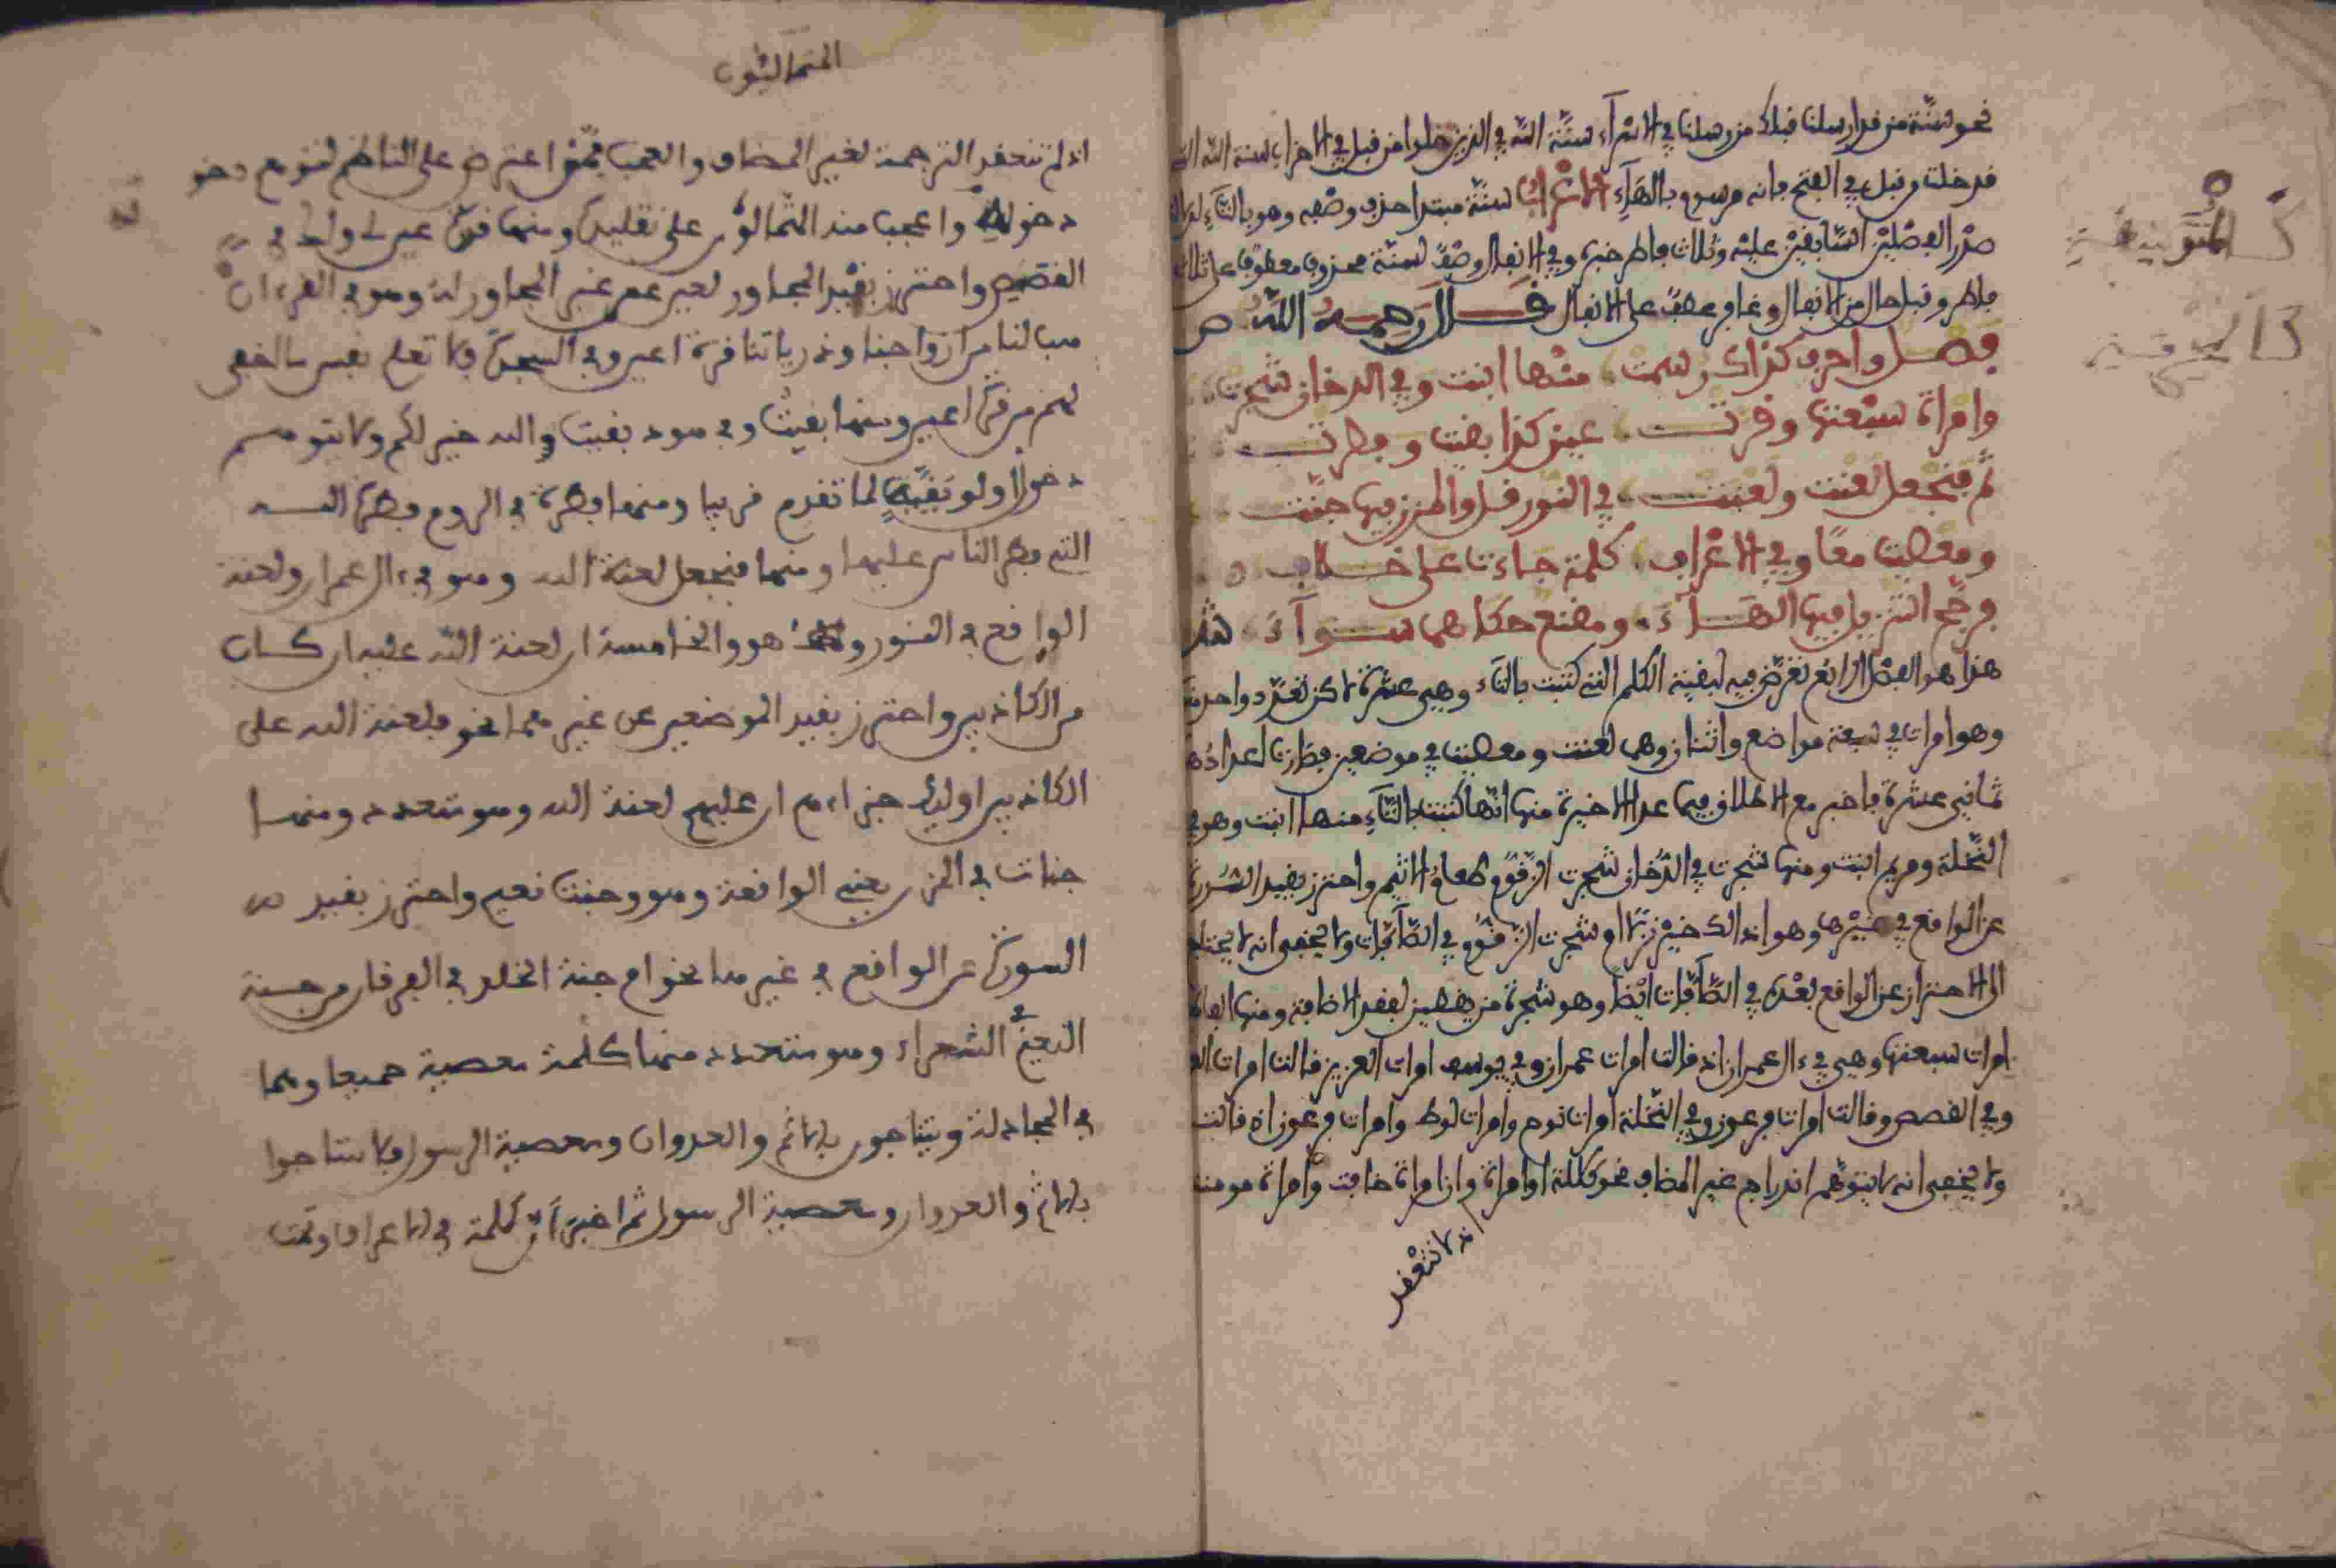 نحو سنة من قد ارسلنا قبلك من رسلنا في الاسرآء سنة الله في الذين خلوا من قبل في الاحزاب سنة الله التى
قد خلت من قبل في الفتح فانه مرسوم بالهآء الاعراب سنة مبتدا حذف وصفه وهو بالتآء
صدر الفصلين السابقين عليه وثلاث فاطر خبره وفي الانفال وصف لسنة محذوف معطوف على ثلاث
فاطر وقبل حال من الانفال وغافر عطف على الانفال قال رحمه الله ص
فصل واحرف كذاك رسمت منها ابنت وفي الدخان شجرت
وامراة سبعتها وقرت عين كذا بقيت وفطرت
ثم فنجعل لعنت ولعنت في النور قل والمزن فيها جنت
ومعصيت معا وفي الاعراف كلمة جاءت على خلاف
فرجح التنزيل فيها الهآء ومقنع حكاهما سوآء ش
هذا هو الفصل الرابع تعرض فيه لبقية الكلم التي كتبت بالتاء وهي عشرة لاكن تعدد واحد منها
وهو امرات في سبعة مواضع واثنان وهما لعنت ومعصيت في موضعين فصارت اعدادها
ثماني عشرة فاخبر مع الاطلاق فيما عدا الاخيرة منها انها كتبت بالتآء منها ابنت وهو في
النحلة ومريم ابنت ومنها شجرت في الدخان شجرت الزقوم طعام الاثيم واحترز بقيد السورة
عن الواقع في غيرها وهو اذالك خير نزلا ام شجرت الزقوم في الصآفات ولا يخفى انه لا يحتاج
الى الاحتراز عن الواقع بعده في الصآفات ايضا وهو شجرة من يقطين لفقد الاضافة ومنها امراة
امرات سبعتها وهي في ءال عمران اذ قالت امرات عمران وفي يوسف امرات العزيز قالت امرات
وفي القصص وقالت امرات فرعون وفي النحلة امرات نوح وامرات لوط وامرات فرعون اذ قالت
ولا يخفى انه لا يتوهم اندراج غير المضاف نحو كللة او امراة وان امراة خافت وامراة مومنة
اذ لا تنعقد
اذ لا تنعقد الترجمة لغير المضاف والعجب ممن اعترض على الناظم لتوهم دخو
دخوله واعجب منه على تقليده ومنها قرت عين لى ولك في
القصص واحترز بقيد المجاور لعين عن غير المجاور له وهو في الفرقان
هب لنا من ازواجنا وذرياتنا قرة اعين وفي السجدة فلا تعلم نفس ما اخفى
لهم من قرة اعين ومنها بقيت وفي هود بقيت الله خير لكم ولا يتوهم
دخول اولوا بقية لما تقدم قريبا ومنها فطرة في الروم فطرة الله
التي فطر الناس عليها ومنها فنجعل لعنة الله وهو في ءال عمران ولعنة
الواقع في النور وهو والخامسة ان لعنة الله عليه ان كان
من الكاذبين واحترز بقيد الموضعين عن غيرهما نحو فلعنة الله على
الكاذبين اوليك جزاءهم ان عليهم لعنة الله وهو متعدد ومنها
جنات في المزن يعني الواقعة وهو وجنت نعيم واحترز بقيد
السورة عن الواقع في غيرها نحو ام جنة الخلد في الفرقان من جنة
النعيم في الشعراء وهو متعدد منها كلمة معصية جميعا وهما
في المجادلة ويتناجون بالاثم والعدوان ومعصية الرسول فلا تتناجوا
بالاثم والعدوان ومعصية الرسول ثم اخبر ان كلمة في الاعراف وتمت